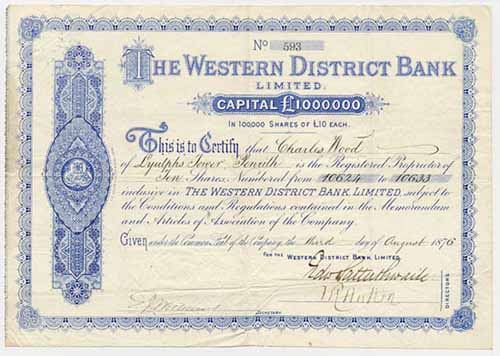 No 593
THE WESTERN DISTRICT BANK
LIMITED.
CAPITAL £1000.000
IN 100000 SHARES OF £10 EACH.
This is to Certify that Charles Wood
of Lyulphs Tower Penrith is the Registered Proprietor of
Ten Shares, Numbered from 10624 to 10633
inclusive in THE WESTERN DISTRICT BANK, LIMITED, subject to
the Conditions and Regulations contained in the Memorandum
and Articles of Association of the Company.
Given under the Common Seal of the Company, the third day of August 1876
FOR THE WESTERN DISTRICT BANK, LIMITED.
DIRECTORS
SECRETARY